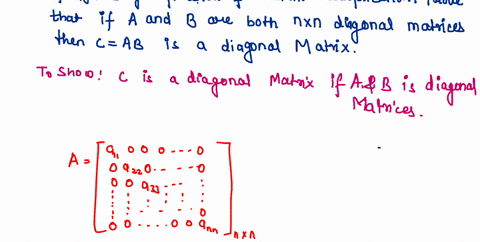 that if A and B are both n×n diagonal matrices
then C=AB is a diagonal Matrix.
To Show: C is a diagonal Matrix if A & B is diagonal
Matrices.
A = [a11 0 0 0 ---- 0
0 a22 0 - - - - 0
0 0 a33 - - - :
: : : : : :
: : - - - 0
0 0 .... 0 0 ann] n×n